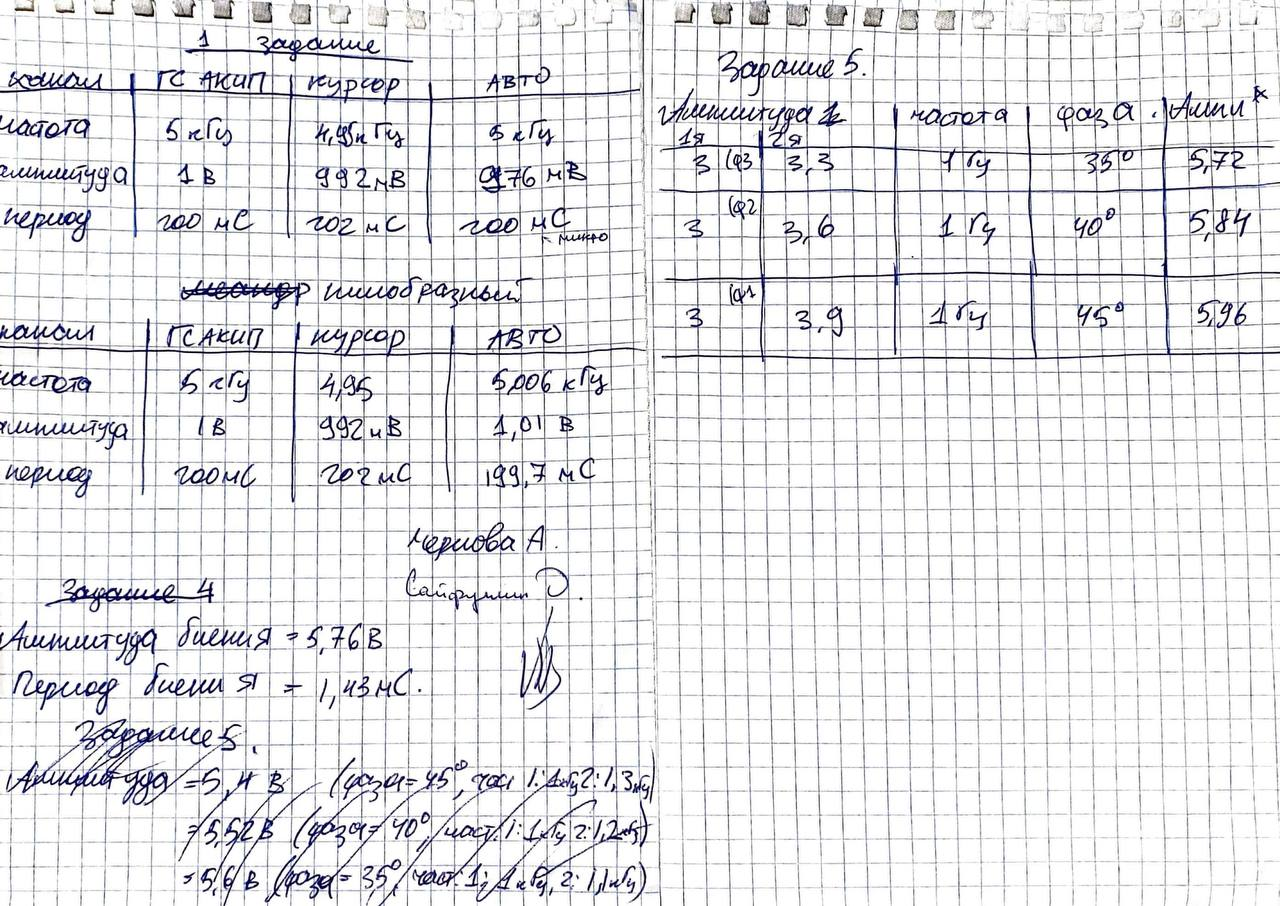 1 задание
канал ГС АКИП курсор АВТО
частота 5 кГц 4,95 кГц 5 кГц
амплитуда 1 В 992 мВ 976 мВ
период 200 мС 202 мС 200 мС
← микро
меандр пилообразный
канал ГС АКИП курсор АВТО
частота 5 кГц 4,95 5,006 кГц
амплитуда 1 В 992 мВ 1,01 В
период 200 мС 202 мС 199,7 мС
Чернова А.
Сайфуллин D.
Задание 4
Амплитуда биения = 5,76 В
Период биения = 1,43 мС.
Задание 5.
Амплитуда = 5,4 В (фаза = 45°, час 1: 1кГц 2: 1,3кГц)
= 5,52 В (фаза = 40°, част. 1: 1кГц 2: 1,2кГц)
= 5,6 В (фаза = 35°, част. 1: 1кГц, 2: 1,1кГц)
Задание 5.
Амплитуда частота фаза Ампл *
1я 2я
3 (φ3 3,3 1 Гц 35° 5,72
3 (φ2 3,6 1 Гц 40° 5,84
3 (φ1 3,9 1 Гц 45° 5,96